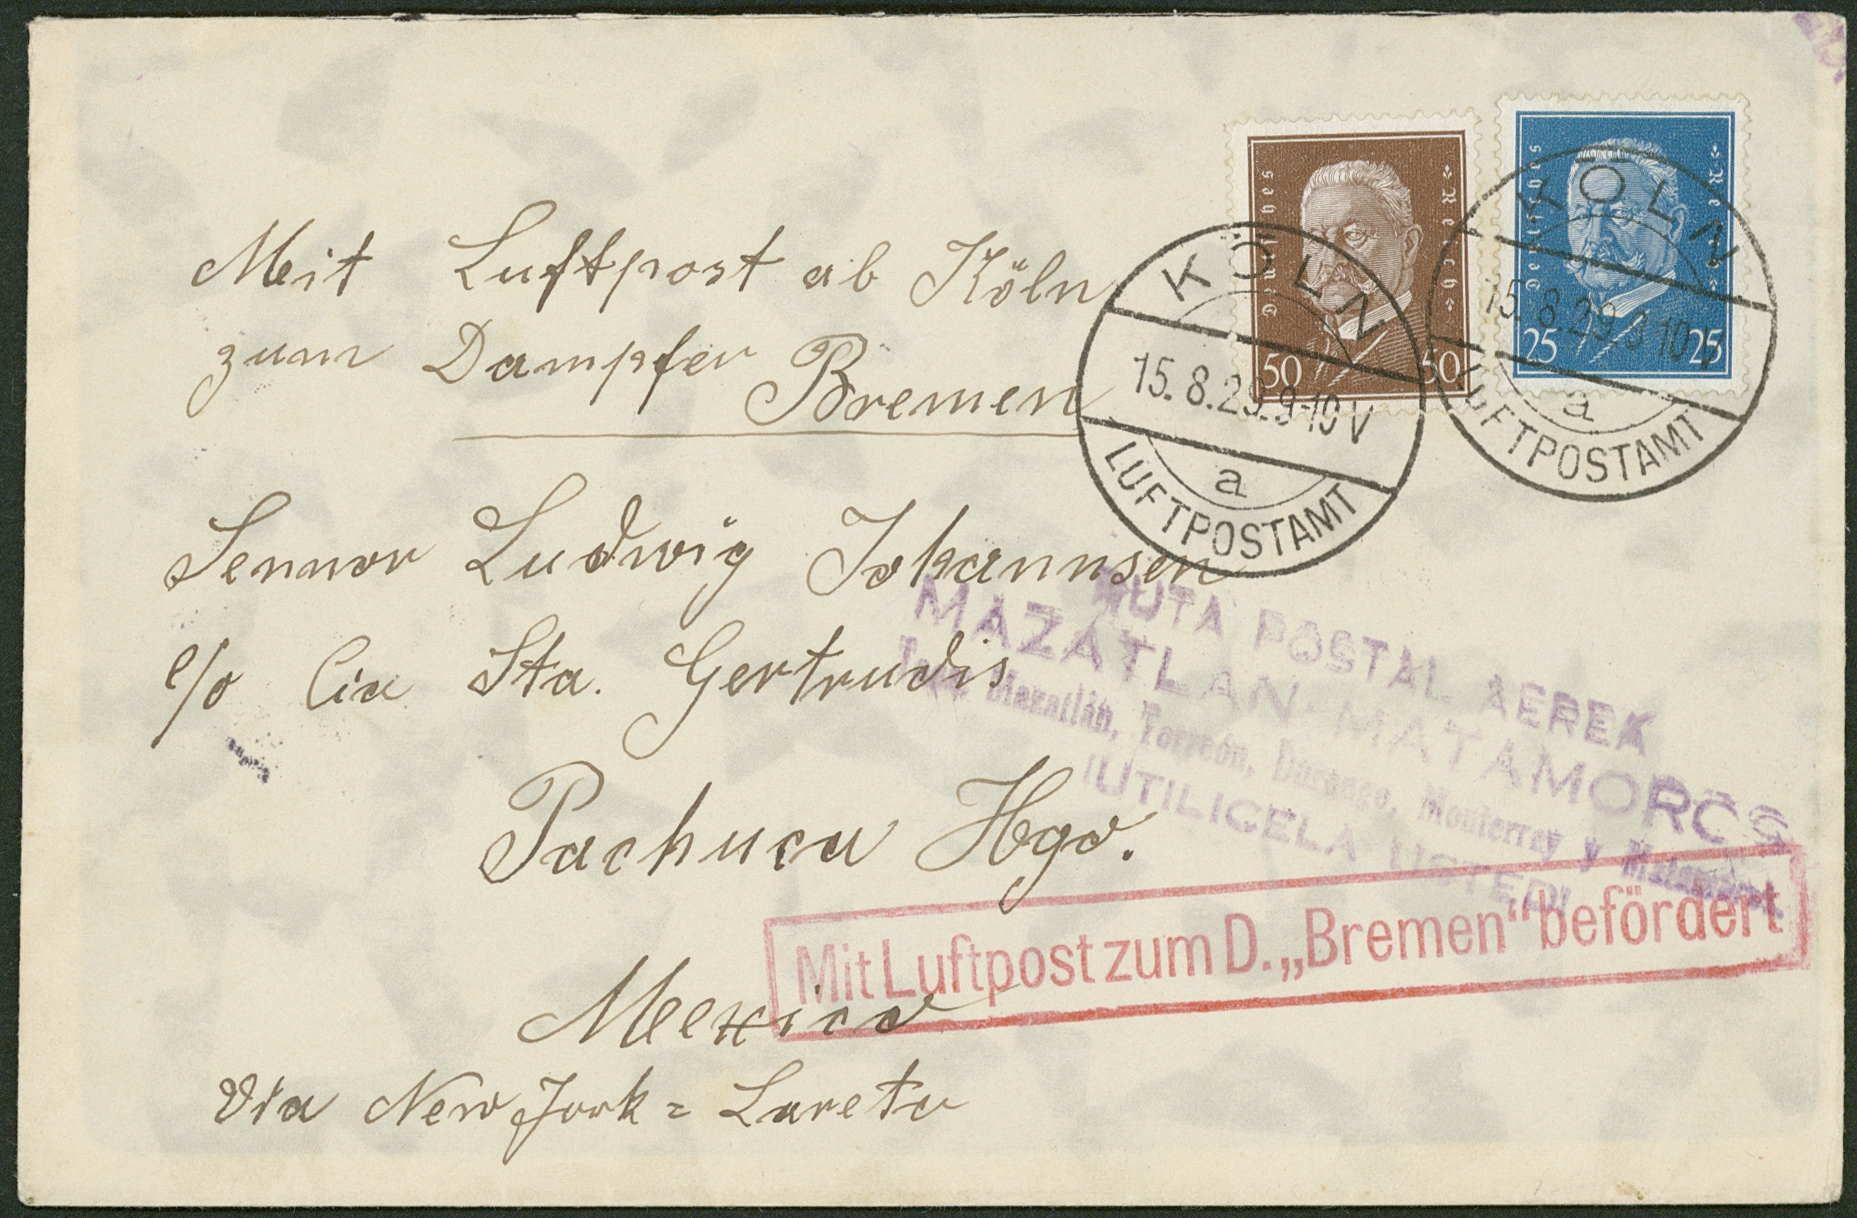 Mit Luftpost ab Köln
zum Dampfer Bremen
Deutsches Reich
50 50
Deutsches Reich
25 25
KÖLN
15.8.29.9-10V
a
LUFTPOSTAMT
KÖLN
15.8.29.9-10V
a
LUFTPOSTAMT
Sennor Ludwig Johannsen
c/o Cia Sta. Gertrudis
Pachuca Hgo.
Mexico
Via New Jork = Lareto
RUTA POSTAL AEREA
MAZATLAN-MATAMOROS
Mazatlán, Torreón, Durango, Monterrey y Matamoros
¡UTILICELA USTED!
Mit Luftpost zum D. „Bremen“ befördert